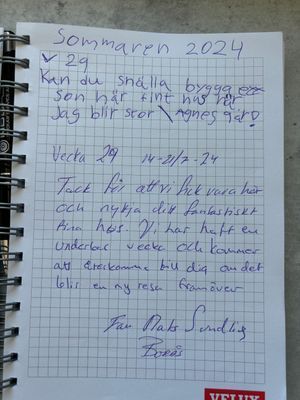 Sommaren 2024
v 29
Kan du snälla bygga
son här fint hus när
Jag blir stor \ Agnes 9år!
Vecka 29 14-21/7-24
Tack för att vi fick vara här
och nyttja ditt fantastiskt
fina hus. Vi har haft en
underbar vecka och kommer
att återkomma till dig om det
blir en ny resa framöver
Fam Mats
Borås
VELUX